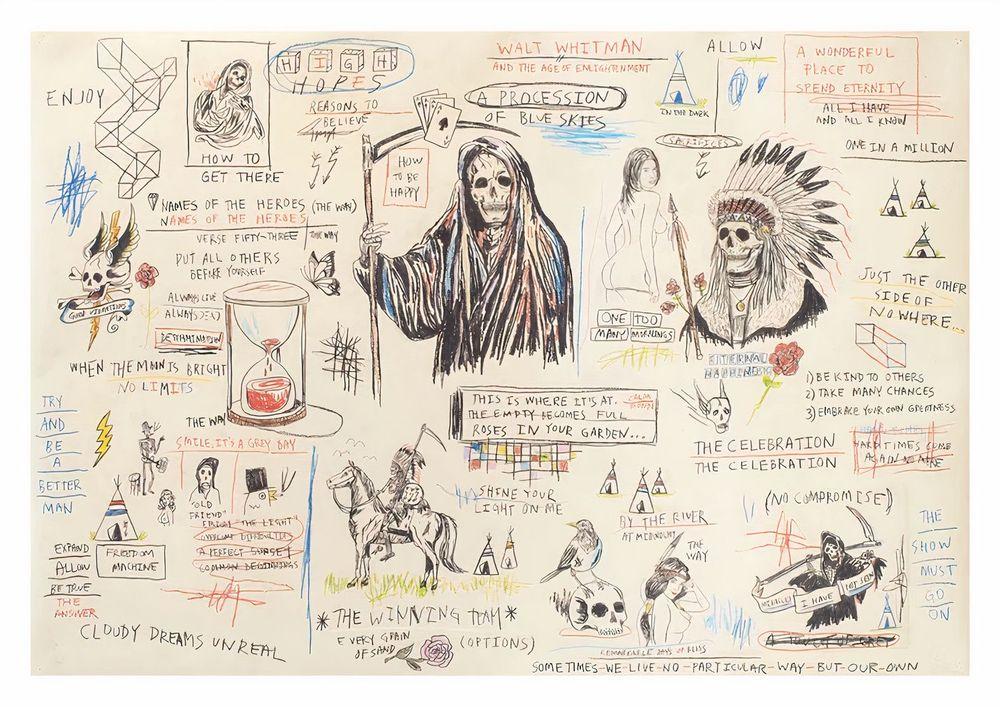 ENJOY
HOW TO
GET THERE
HIGH
HOPES
REASONS TO
BELIEVE
WALT WHITMAN
AND THE AGE OF ENLIGHTENMENT
A PROCESSION
OF BLUE SKIES
HOW
TO BE
HAPPY
ALLOW
IN THE DARK
A WONDERFUL
PLACE TO
SPEND ETERNITY
ALL I HAVE
AND ALL I KNOW
SACRIFICES
ONE IN A MILLION
NAMES OF THE HEROES (THE WAY)
NAMES OF THE HEROES
VERSE FIFTY-THREE
THE WAY
PUT ALL OTHERS
BEFORE YOURSELF
GOOD VIBRATIONS
ALWAYS LIVE
ALWAYS DEAD
DETERMINATION
WHEN THE MOON IS BRIGHT
NO LIMITS
JUST THE OTHER
SIDE OF
NOWHERE...
ONE TOO
MANY MORNINGS
ETERNAL
HAPPINESS
TRY
AND
BE
A
BETTER
MAN
THE WAY
SMILE, IT'S A GREY DAY
"OLD
FRIEND"
THE LIGHT"
A PERFECT SUNSET
COMMON BEGINNINGS
THIS IS WHERE IT'S AT.
THE EMPTY BECOMES FULL
ROSES IN YOUR GARDEN...
1) BE KIND TO OTHERS
2) TAKE MANY CHANCES
3) EMBRACE YOUR OWN GREATNESS
THE CELEBRATION
THE CELEBRATION
HARD TIMES COME
AGAIN NO MORE
SHINE YOUR
LIGHT ON ME
BY THE RIVER
AT MIDNIGHT
THE
WAY
(NO COMPROMISE)
THE
SHOW
MUST
GO
ON
I HAVE
EXPAND
ALLOW
BE TRUE
THE
ANSWER
FREEDOM
MACHINE
CLOUDY DREAMS UNREAL
*THE WINNING TEAM*
EVERY GRAIN
OF SAND
(OPTIONS)
REMARKABLE DAYS OF BLISS
A TOUCH OF GREY
SOMETIMES-WE-LIVE-NO-PARTICULAR-WAY-BUT-OUR-OWN